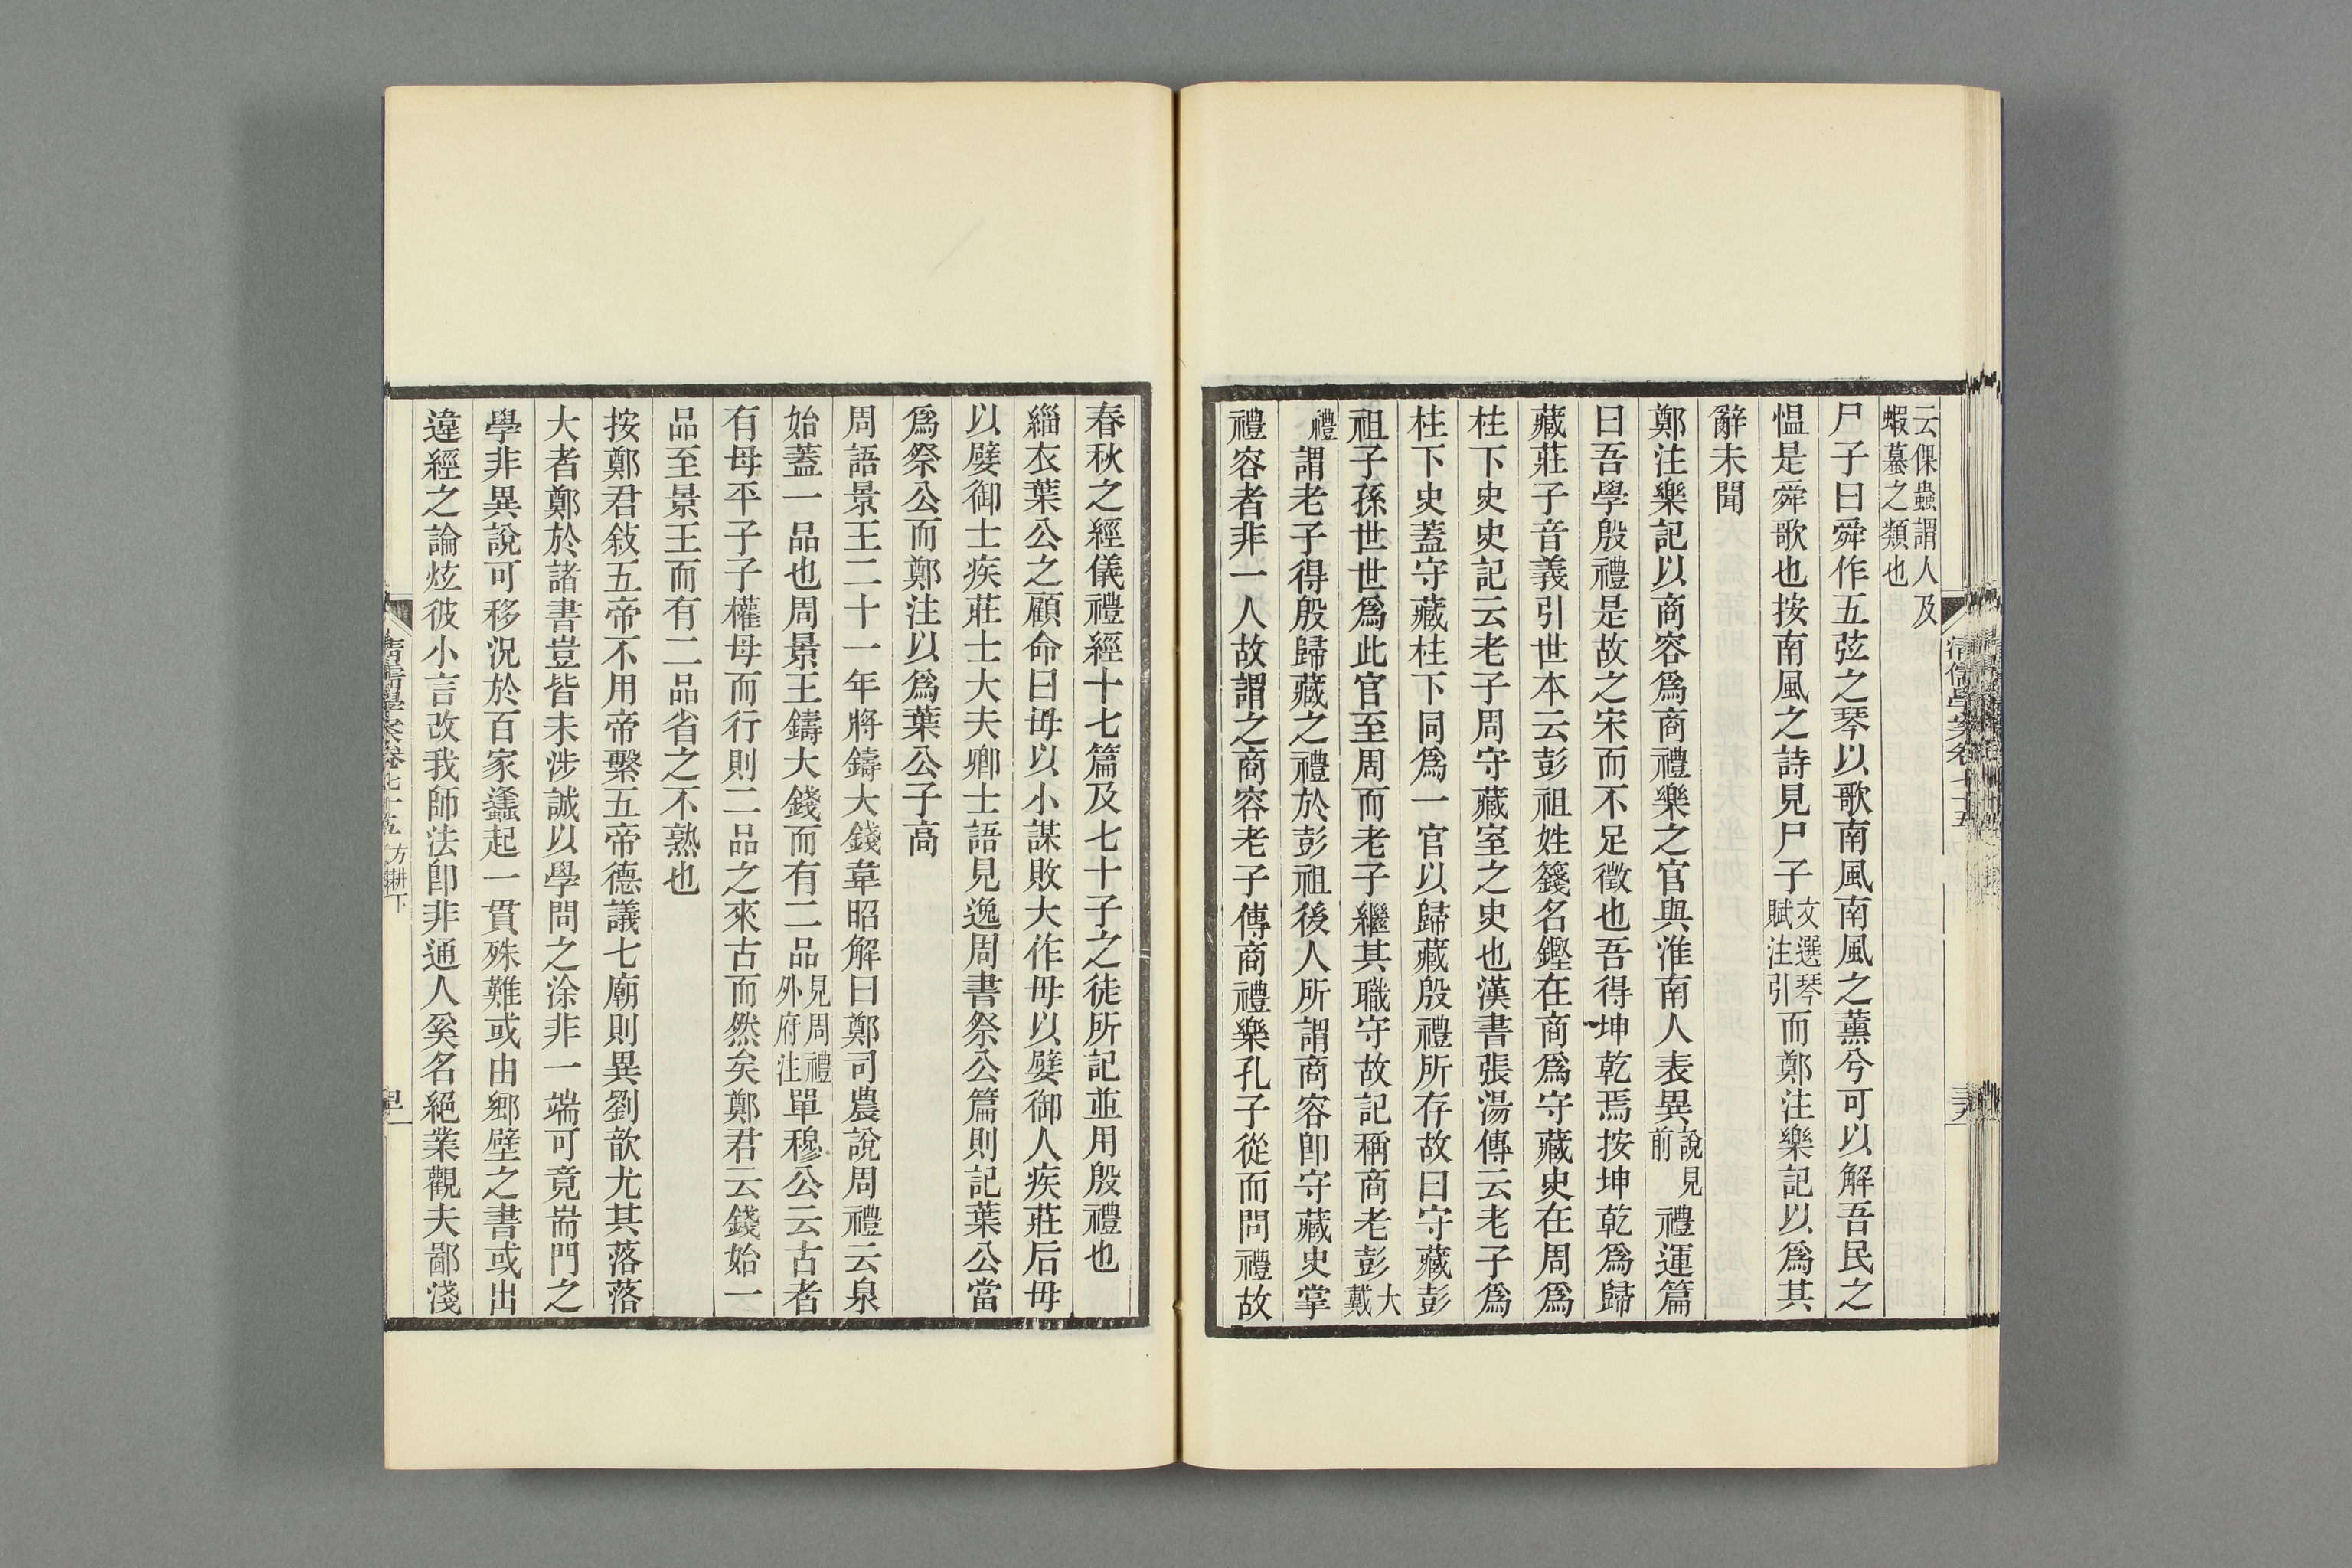 云倮蟲謂人及
蝦蟇之類也
尸子曰舜作五弦之琴以歌南風南風之薰兮可以解吾民之
愠是舜歌也按南風之詩見尸子文選琴賦注引而鄭注樂記以爲其
辭未聞
鄭注樂記以商容爲商禮樂之官與淮南人表異說見前禮運篇
曰吾學殷禮是故之宋而不足徵也吾得坤乾焉按坤乾爲歸
藏莊子音義引世本云彭祖姓籛名鏗在商爲守藏史在周爲
柱下史史記云老子周守藏室之史也漢書張湯傳云老子爲
柱下史蓋守藏柱下同爲一官以歸藏殷禮所存故曰守藏彭
祖子孫世世爲此官至周而老子繼其職守故記稱商老彭大戴
禮謂老子得殷歸藏之禮於彭祖後人所謂商容卽守藏史掌
禮容者非一人故謂之商容老子傳商禮樂孔子從而問禮故
春秋之經儀禮經十七篇及七十子之徒所記並用殷禮也
緇衣葉公之顧命曰毋以小謀敗大作毋以嬖御人疾莊后毋
以嬖御士疾莊士大夫卿士語見逸周書祭公篇則記葉公當
爲祭公而鄭注以爲葉公子高
周語景王二十一年將鑄大錢韋昭解曰鄭司農說周禮云泉
始蓋一品也周景王鑄大錢而有二品見周禮外府注單穆公云古者
有母平子子權母而行則二品之來古而然矣鄭君云錢始一
品至景王而有二品省之不熟也
按鄭君敍五帝不用帝繫五帝德議七廟則異劉歆尤其落落
大者鄭於諸書豈皆未涉誠以學問之涂非一端可竟耑門之
學非異說可移況於百家蠭起一貫殊難或由鄉壁之書或出
違經之論炫彼小言改我師法卽非通人奚名絕業觀夫鄙淺
清儒學案卷七十五 方耕下